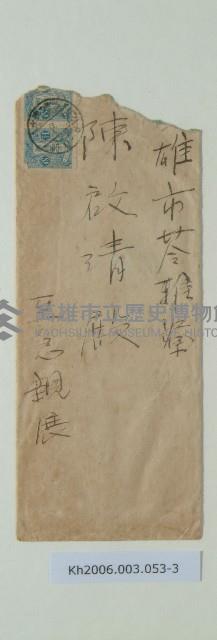 雄市苓雅寮
陳啟清殿
至急親展
高雄市立歷史博物館
KAOHSIUNG MUSEUM OF HISTORY
Kh2006.003.053-3